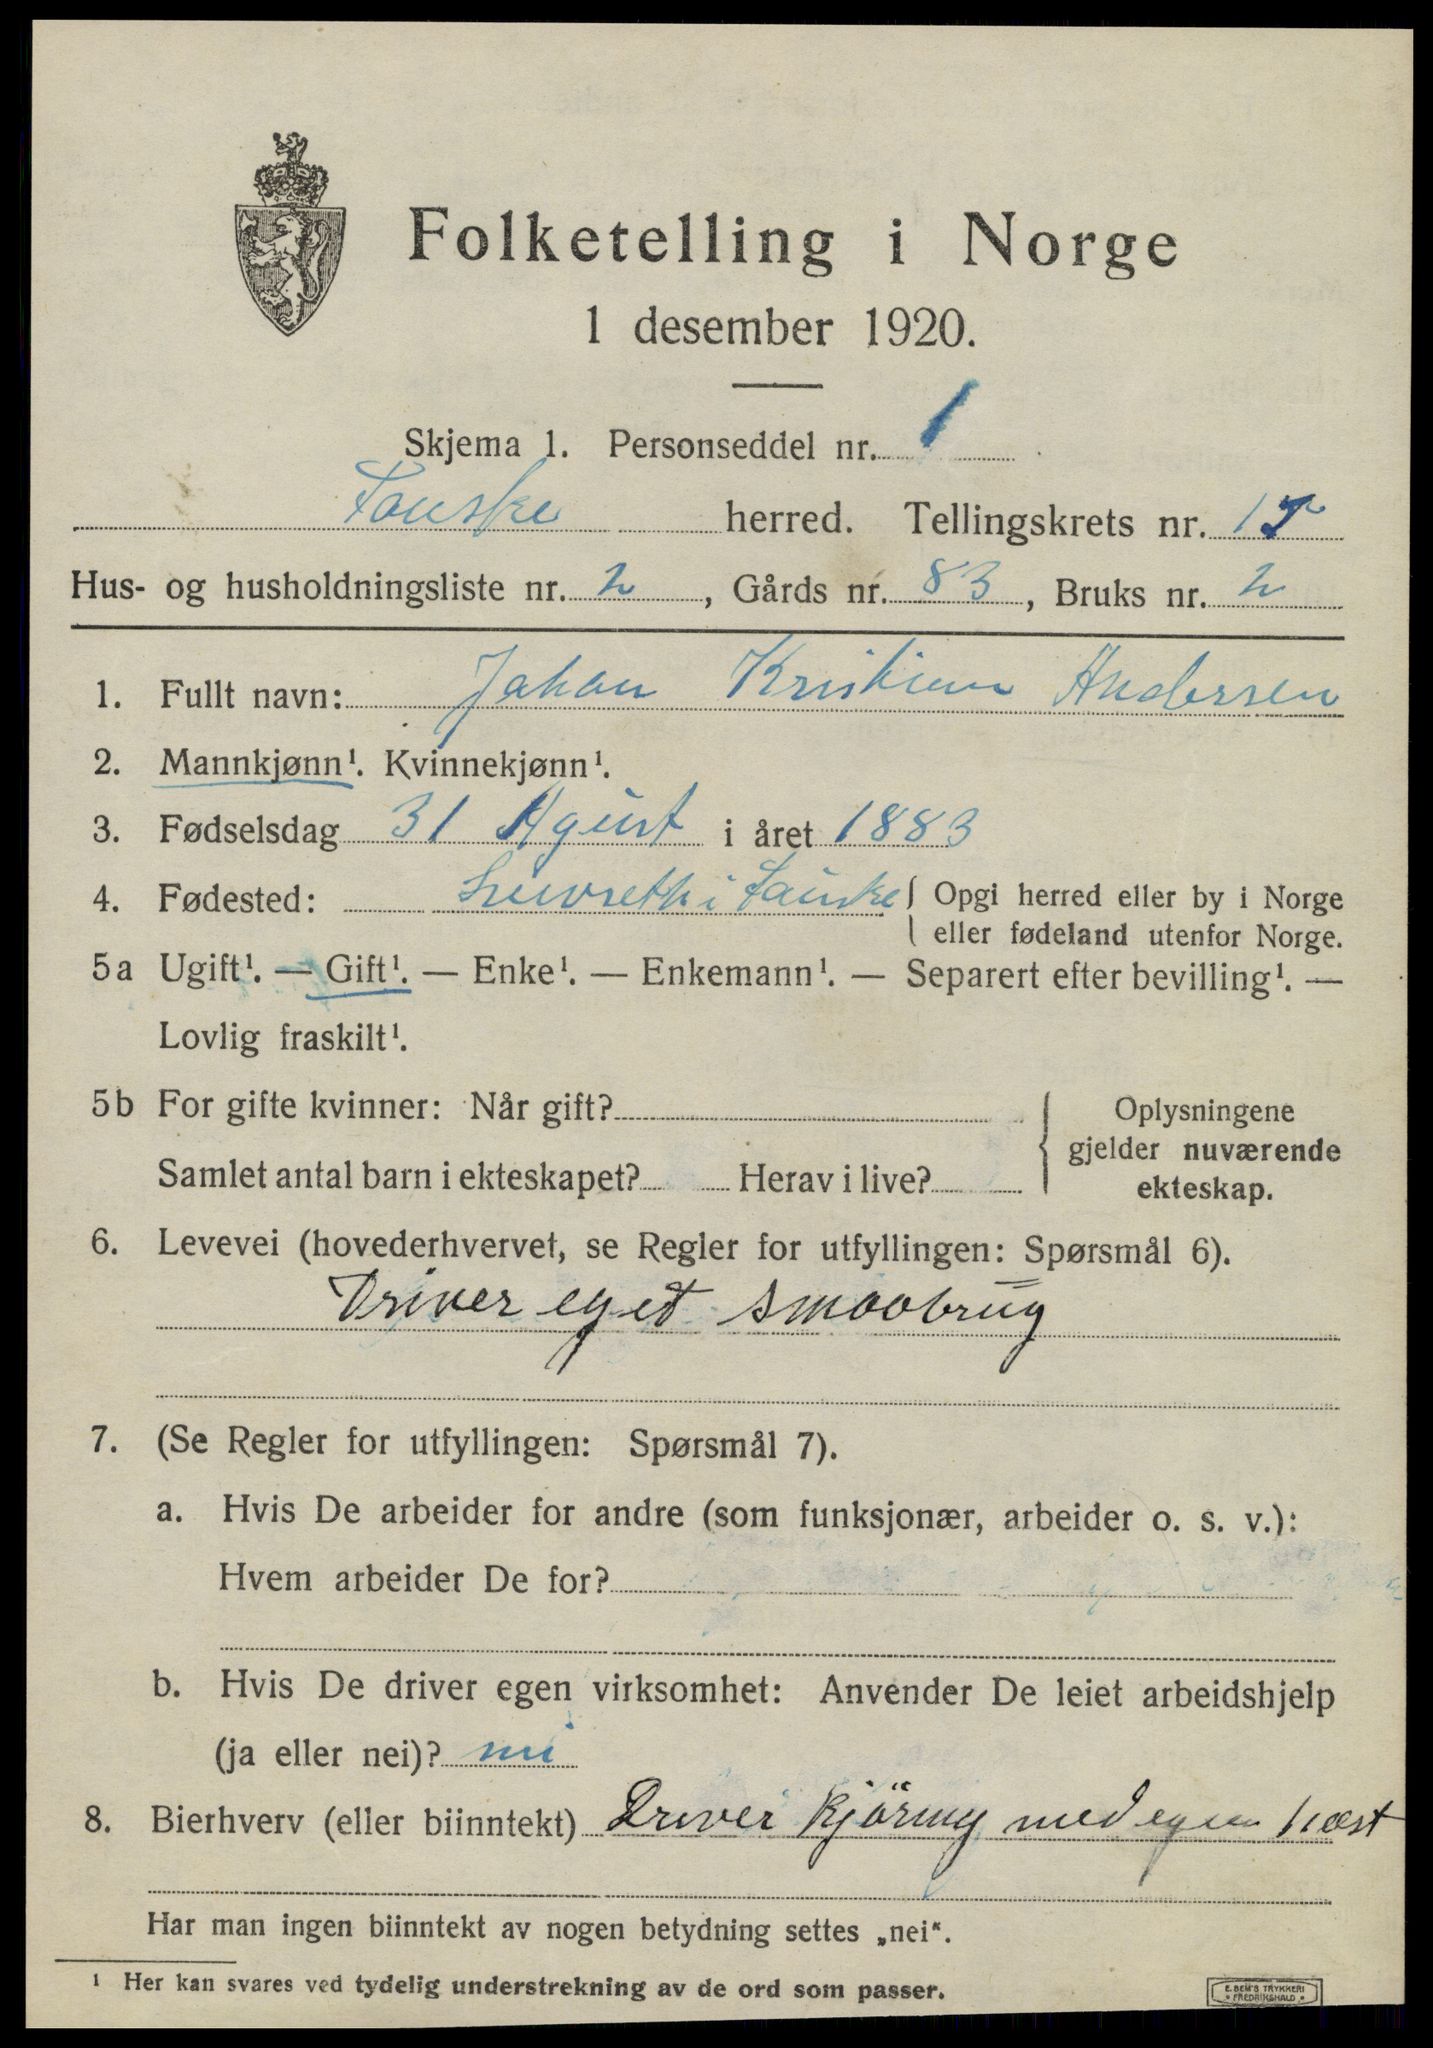 Folketelling i Norge
1 desember 1920.
Skjema 1. Personseddel nr. 1
Fauske herred. Tellingskrets nr. 1
Hus- og husholdningsliste nr. 2, Gårds nr. 83, Bruks nr. 2
1. Fullt navn: Johan Kristian Andersen
2. Mannkjønn¹. Kvinnekjønn¹.
3. Fødselsdag 31 Agust i året 1883
4. Fødested: i Fauske
Opgi herred eller by i Norge
eller fødeland utenfor Norge.
5a Ugift¹. — Gift¹. — Enke¹. — Enkemann¹. — Separert efter bevilling¹. —
Lovlig fraskilt¹.
5b For gifte kvinner: Når gift?
Samlet antal barn i ekteskapet? Herav i live?
Oplysningene
gjelder nuværende
ekteskap.
6. Levevei (hovederhvervet, se Regler for utfyllingen: Spørsmål 6).
Driver eget smaabrug
7. (Se Regler for utfyllingen: Spørsmål 7).
a. Hvis De arbeider for andre (som funksjonær, arbeider o. s. v.):
Hvem arbeider De for?
b. Hvis De driver egen virksomhet: Anvender De leiet arbeidshjelp
(ja eller nei)? nei
8. Bierhverv (eller biinntekt) Driver kjöring med egen hæst
Har man ingen biinntekt av nogen betydning settes „nei“.
¹ Her kan svares ved tydelig understrekning av de ord som passer.
E. SEM'S TRYKKERI
* FREDRIKSHALD *